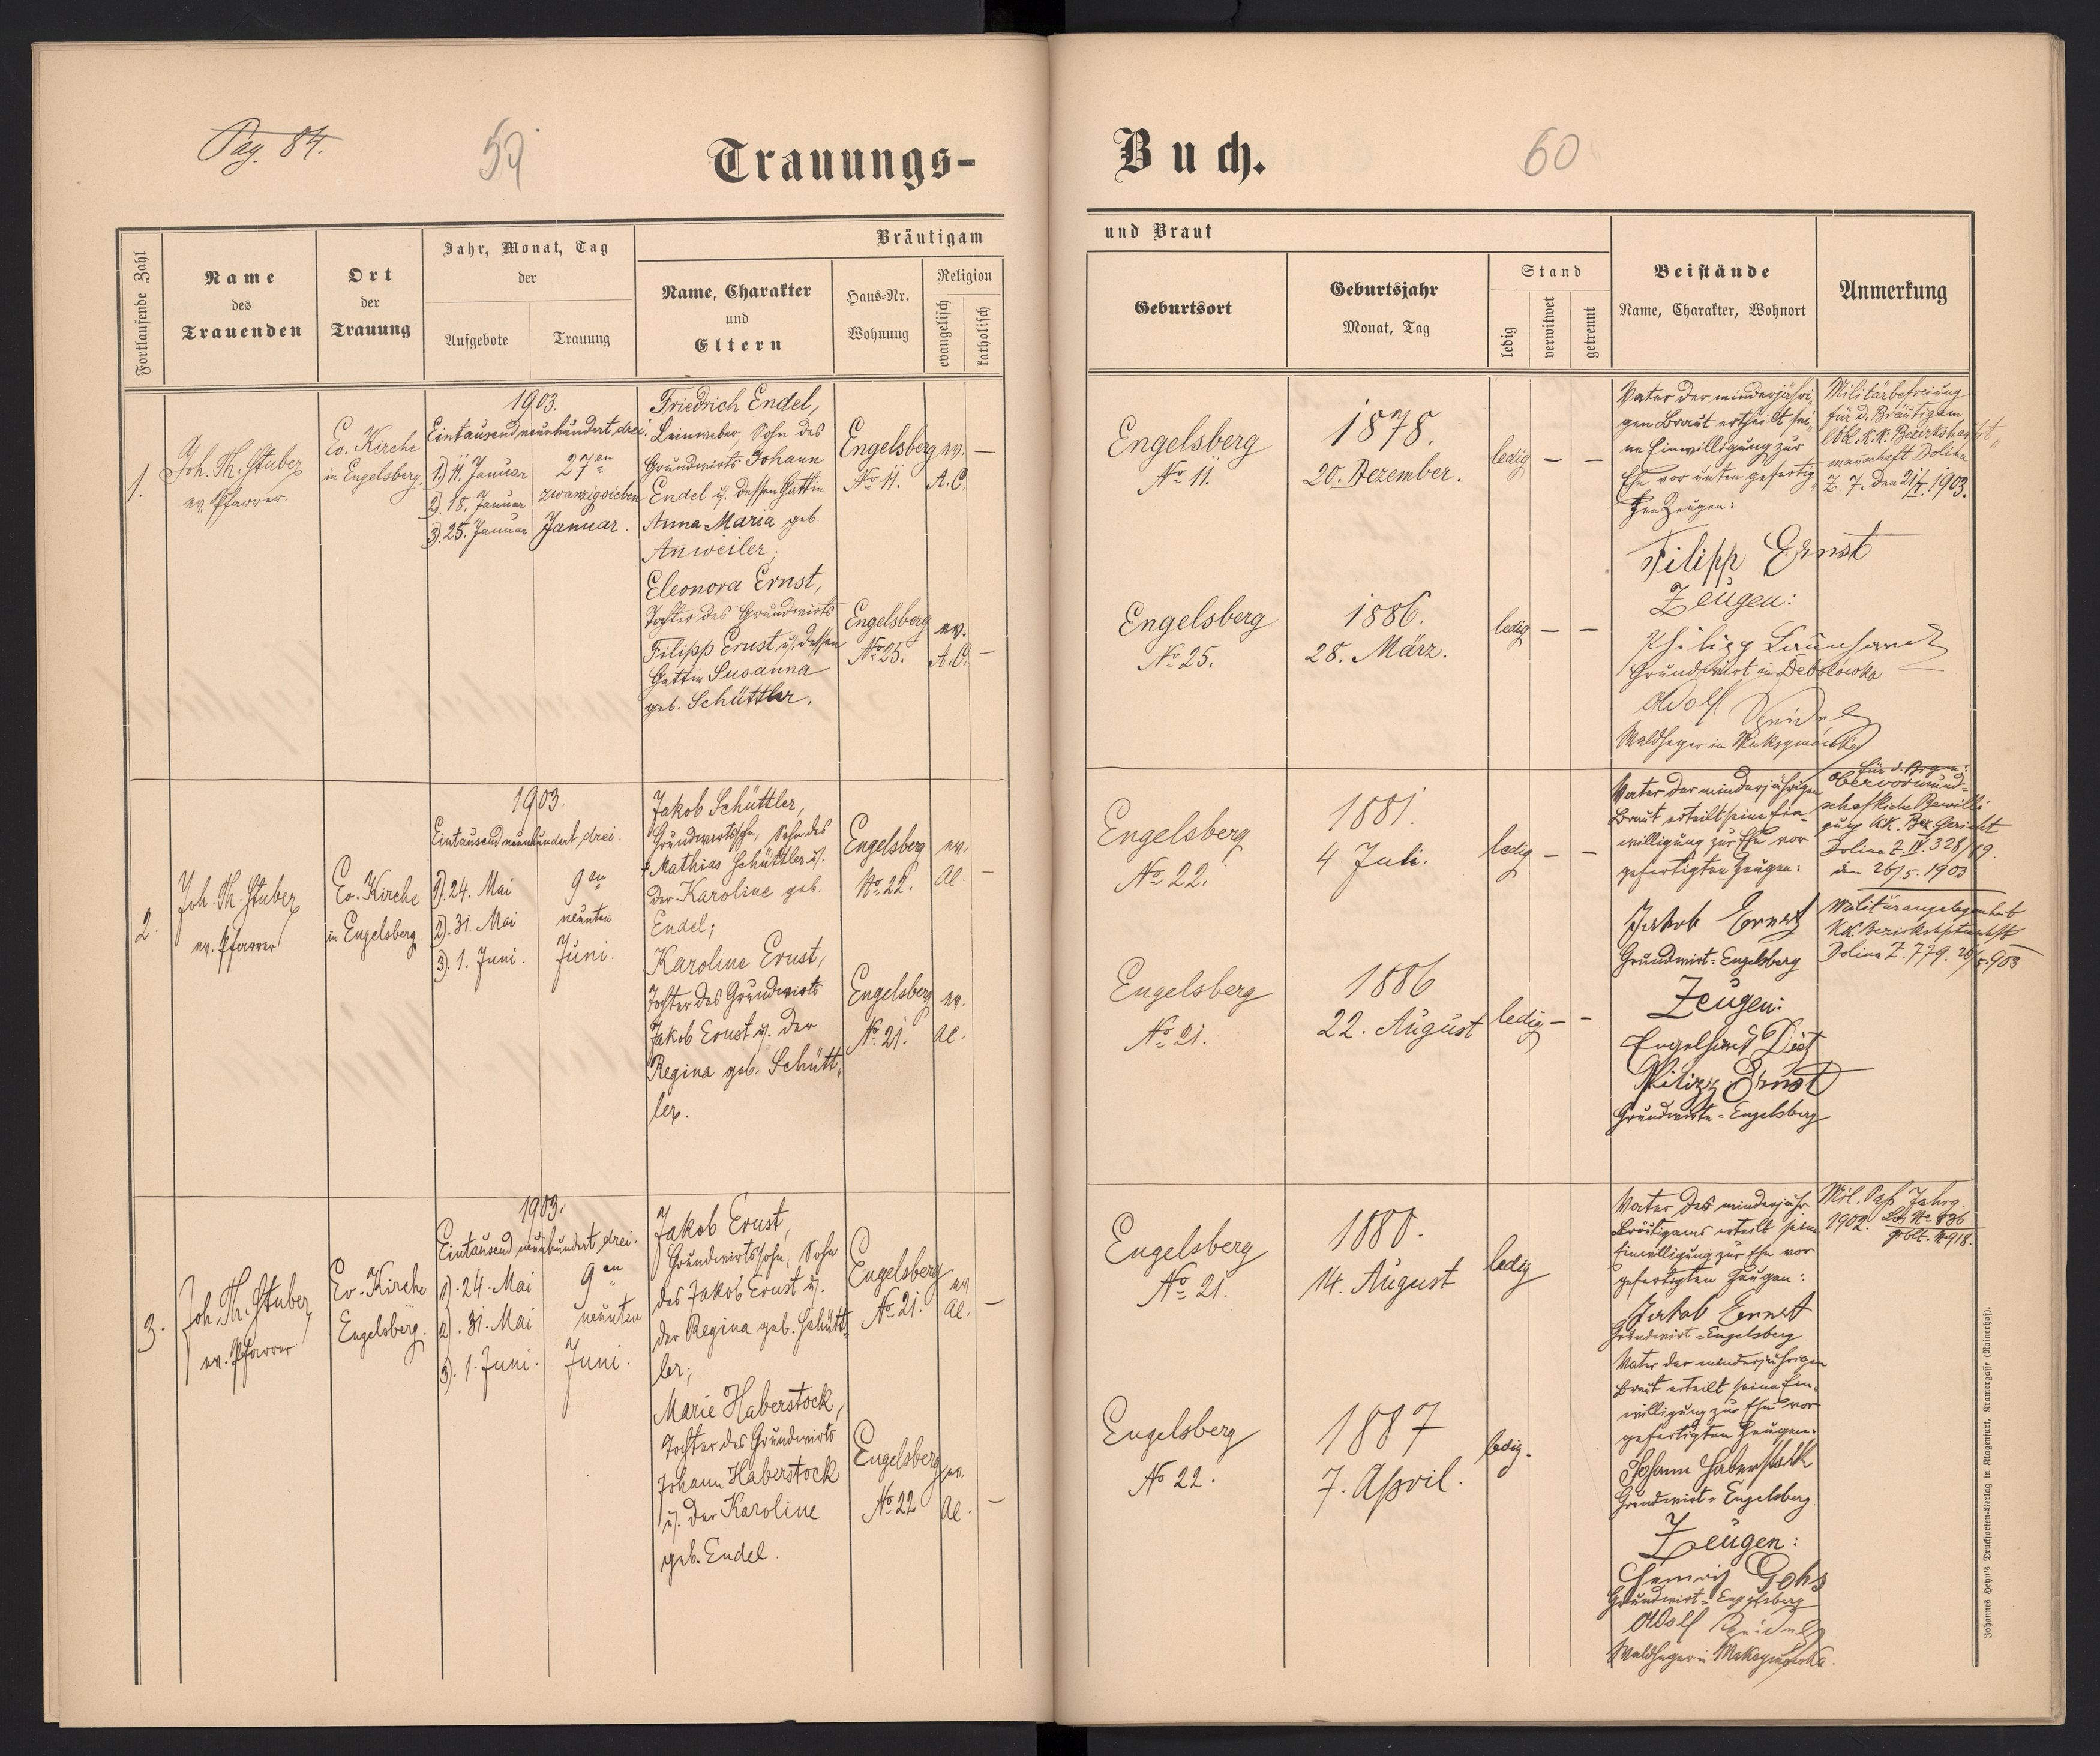 Pag. 84.
59
Trauungs-
Buch.
60
Fortlaufende Zahl
Name
des
Trauenden
Ort
der
Trauung
Jahr, Monat, Tag
der
Aufgebote
Trauung
Bräutigam
Name, Charakter
und
Eltern
Haus-Nr.
Wohnung
Religion
evangelisch
katholisch
und Braut
Geburtsort
Geburtsjahr
Monat, Tag
Stand
ledig
verwitwet
getrennt
Beistände
Name, Charakter, Wohnort
Anmerkung
1.
Joh. Th. Stuber
ev. Pfarrer.
Ev. Kirche
in Engelsberg.
1903.
Eintausendneunhundert, drei.
1). 11. Januar
2). 18. Januar
3). 25. Januar
27en
zwanzigsieben
Januar.
Friedrich Endel,
Leinweber, Sohn des
Grundwirts Johann
Endel u. dessen Gattin
Anna Maria geb.
Anweiler;
Engelsberg
No 11.
ev.
A.C.
—
Eleonora Ernst,
Tochter des Grundwirts
Filipp Ernst u. dessen
Gattin Susanna
geb. Schüttler.
Engelsberg
No 25.
ev.
A.C.
—
Engelsberg
No 11.
1878.
20. Dezember.
ledig — —
Engelsberg
No 25.
1886.
28. März.
ledig — —
Vater der minderjähri-
gen Braut ertheilt sei-
ne Einwilligung zur
Ehe vor unten gefertig-
ten Zeugen:
Filipp Ernst
Zeugen:
Philipp Launhardt
Grundwirt in Debolówka
Adolf
Waldheger in
Militärbefreiung
für d. Bräutigam
löbl. k. k. Bezirkshaupt-
mannschaft Dolina
Z. 7. den 21/I. 1903.
2.
Joh. Th. Stuber
ev. Pfarrer
Ev. Kirche
in Engelsberg.
1903.
Eintausendneunhundert, drei.
1). 24. Mai
2). 31. Mai
3). 1. Juni.
9en
neunten
Juni.
Jakob Schüttler,
Grundwirtssohn, Sohn des
† Mathias Schüttler u.
der Karoline geb.
Endel;
Engelsberg
No. 22.
ev.
AC.
—
Karoline Ernst,
Tochter des Grundwirts
Jakob Ernst u. der
Regina geb. Schütt-
ler.
Engelsberg
No. 21.
ev.
AC.
Engelsberg
No 22.
1881.
4. Juli.
ledig — —
Engelsberg
No 21.
1886
22. August
ledig — —
Vater der minderjährigen
Braut erteilt seine Ein-
willigung zur Ehe vor
gefertigten Zeugen:
Jakob Ernst
Grundwirt = Engelsberg
Zeugen:
Engelhard
Philipp Ernst
Grundwirte = Engelsberg
Obervormund-
schaftliche Bewilli-
gung kk. Bez. Gericht
Dolina Z. IV. 328/
den 26/5. 1903
Militärangelegenheit
KK Bezirkshptmschft
Dolina Z. 779. 26/5. 903
3.
Joh. Th. Stuber
ev. Pfarrer
Ev. Kirche
Engelsberg.
1903.
Eintausend neunhundert, drei.
1). 24. Mai
2). 31. Mai
3). 1. Juni.
9en
neunten
Juni.
Jakob Ernst,
Grundwirtssohn, Sohn
des Jakob Ernst u.
der Regina geb. Schütt-
ler;
Engelsberg
No. 21.
ev
AC.
—
Marie Haberstock,
Tochter des Grundwirts
Johann Haberstock
u. der Karoline
geb. Endel.
Engelsberg
No. 22
ev.
AC.
—
Engelsberg
No 21.
1880.
14. August
ledig
Engelsberg
No 22.
1887
7. April.
ledig.
Vater des minderjähr.
Bräutigams erteilt seine
Einwilligung zur Ehe vor
gefertigten Zeugen:
Jakob Ernst
Grundwirt = Engelsberg
Vater der minderjährigen
Braut erteilt seine Ein-
willigung zur Ehe vor
gefertigten Zeugen:
Johann Haberstock
Grundwirt = Engelsberg.
Zeugen:
Gohs
Grundwirt = Engelsberg
Adolf
Waldheger in
Mil. Paß Jahrg.
1902.
Johannes Heyn's Drucksorten-Verlag in Klagenfurt, Kramergasse (Rainerhof).